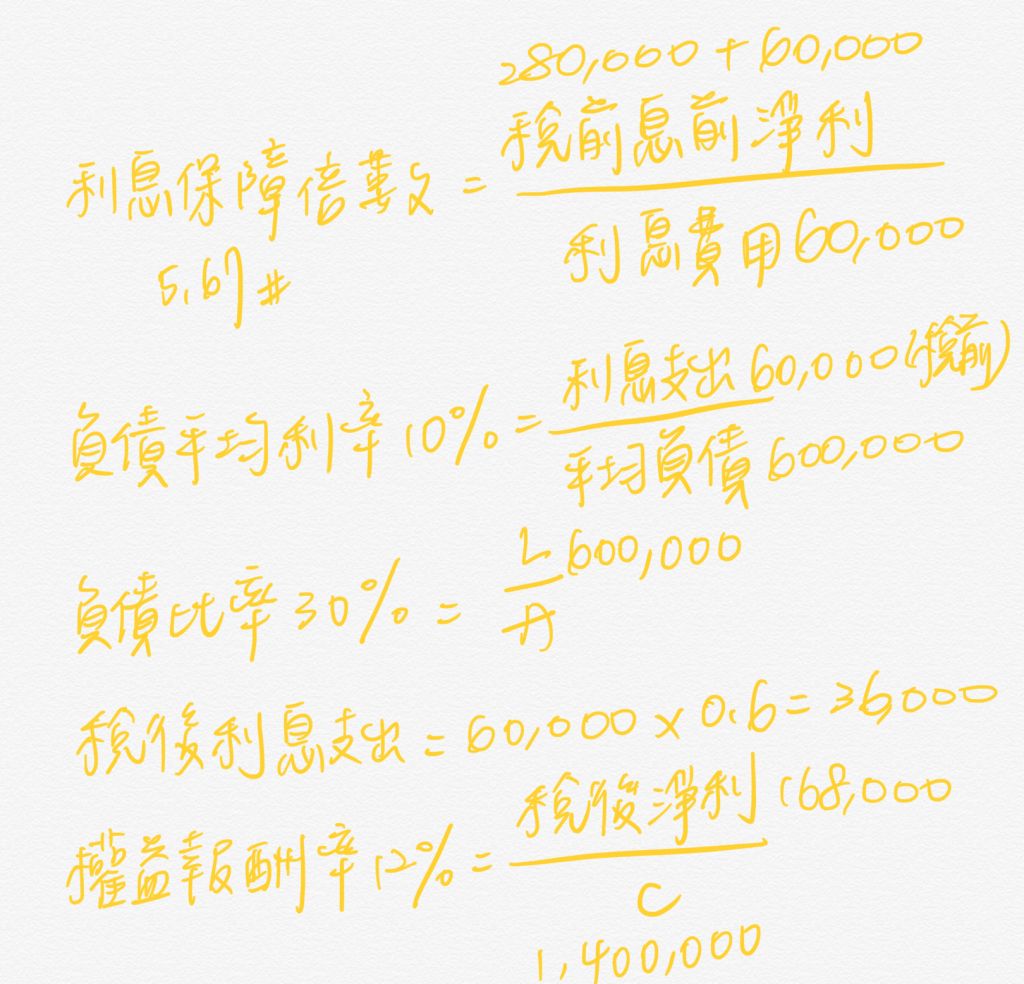 280,000 + 60,000
利息保障倍數 = 稅前息前淨利
利息費用 60,000
5.67 #
負債平均利率 10% = 利息支出 60,000 (稅前)
平均負債 600,000
負債比率 30% = L 600,000
A
稅後利息支出 = 60,000 × 0.6 = 36,000
權益報酬率 12% = 稅後淨利 168,000
C
1,400,000